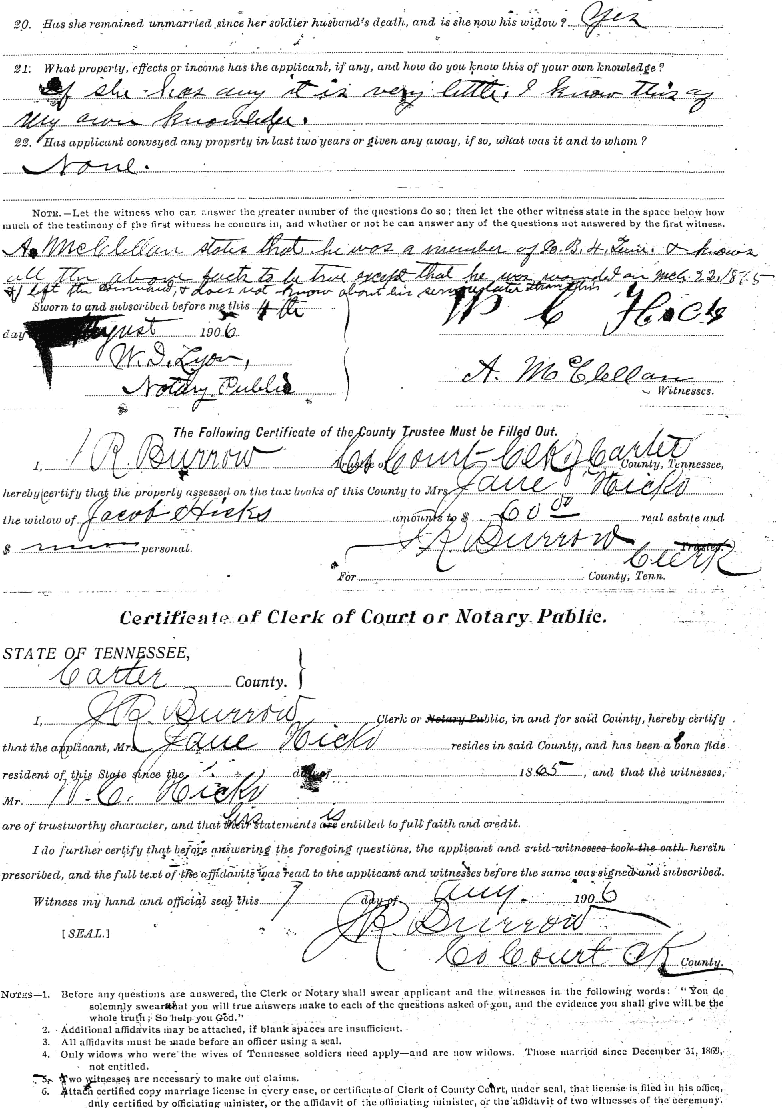 20. Has she remained unmarried since her soldier husband's death, and is she now his widow? Yes
21. What property, effects or income has the applicant, if any, and how do you know this of your own knowledge?
If she has any it is very little. I know this of
my own knowledge.
22. Has applicant conveyed any property in last two years or given any away, if so, what was it and to whom?
None.
NOTE.—Let the witness who can answer the greater number of the questions do so; then let the other witness state in the space below how
much of the testimony of the first witness he concurs in, and whether or not he can answer any of the questions not answered by the first witness.
A. McClellan states that he was a member of Co. B. 4. Tenn. & knows
all the above facts to be true except that he was wounded on Mch. 22, 1865
& left the command, & does not know about his service later than this
Sworn to and subscribed before me this 4th
day August 1906
W C Hicks
W. D. Lyon,
Notary Public
A. McClellan
Witnesses.
The Following Certificate of the County Trustee Must be Filled Out.
I, J R Burrow Co Court Clk of Carter County, Tennessee,
hereby certify that the property assessed on the tax books of this County to Mrs Jane Hicks
the widow of Jacob Hicks amounts to $ 60 00 real estate and
$ personal. J R Burrow Trustee.
Clerk
For County, Tenn.
Certificate of Clerk of Court or Notary Public.
STATE OF TENNESSEE,
Carter County.
I, J R Burrow Clerk or Notary Public, in and for said County, hereby certify
that the applicant, Mrs Jane Hicks resides in said County, and has been a bona fide
resident of this State since the day of 1865, and that the witnesses,
Mr. W. C. Hicks
are of trustworthy character, and that his statements is entitled to full faith and credit.
I do further certify that before answering the foregoing questions, the applicant and said witnesses took the oath herein
prescribed, and the full text of the affidavits was read to the applicant and witnesses before the same was signed and subscribed.
Witness my hand and official seal this 7 day of Aug. 1906
[SEAL.] J R Burrow
Co Court Clk County.
NOTES—1. Before any questions are answered, the Clerk or Notary shall swear applicant and the witnesses in the following words: "You do
solemnly swear that you will true answers make to each of the questions asked of you, and the evidence you shall give will be the
whole truth; So help you God."
2. Additional affidavits may be attached, if blank spaces are insufficient.
3. All affidavits must be made before an officer using a seal.
4. Only widows who were the wives of Tennessee soldiers need apply—and are now widows. Those married since December 31, 1869,
not entitled.
5. Two witnesses are necessary to make out claims.
6. Attach certified copy marriage license in every case, or certificate of Clerk of County Court, under seal, that license is filed in his office,
duly certified by officiating minister, or the affidavit of the officiating minister, or the affidavit of two witnesses of the ceremony.